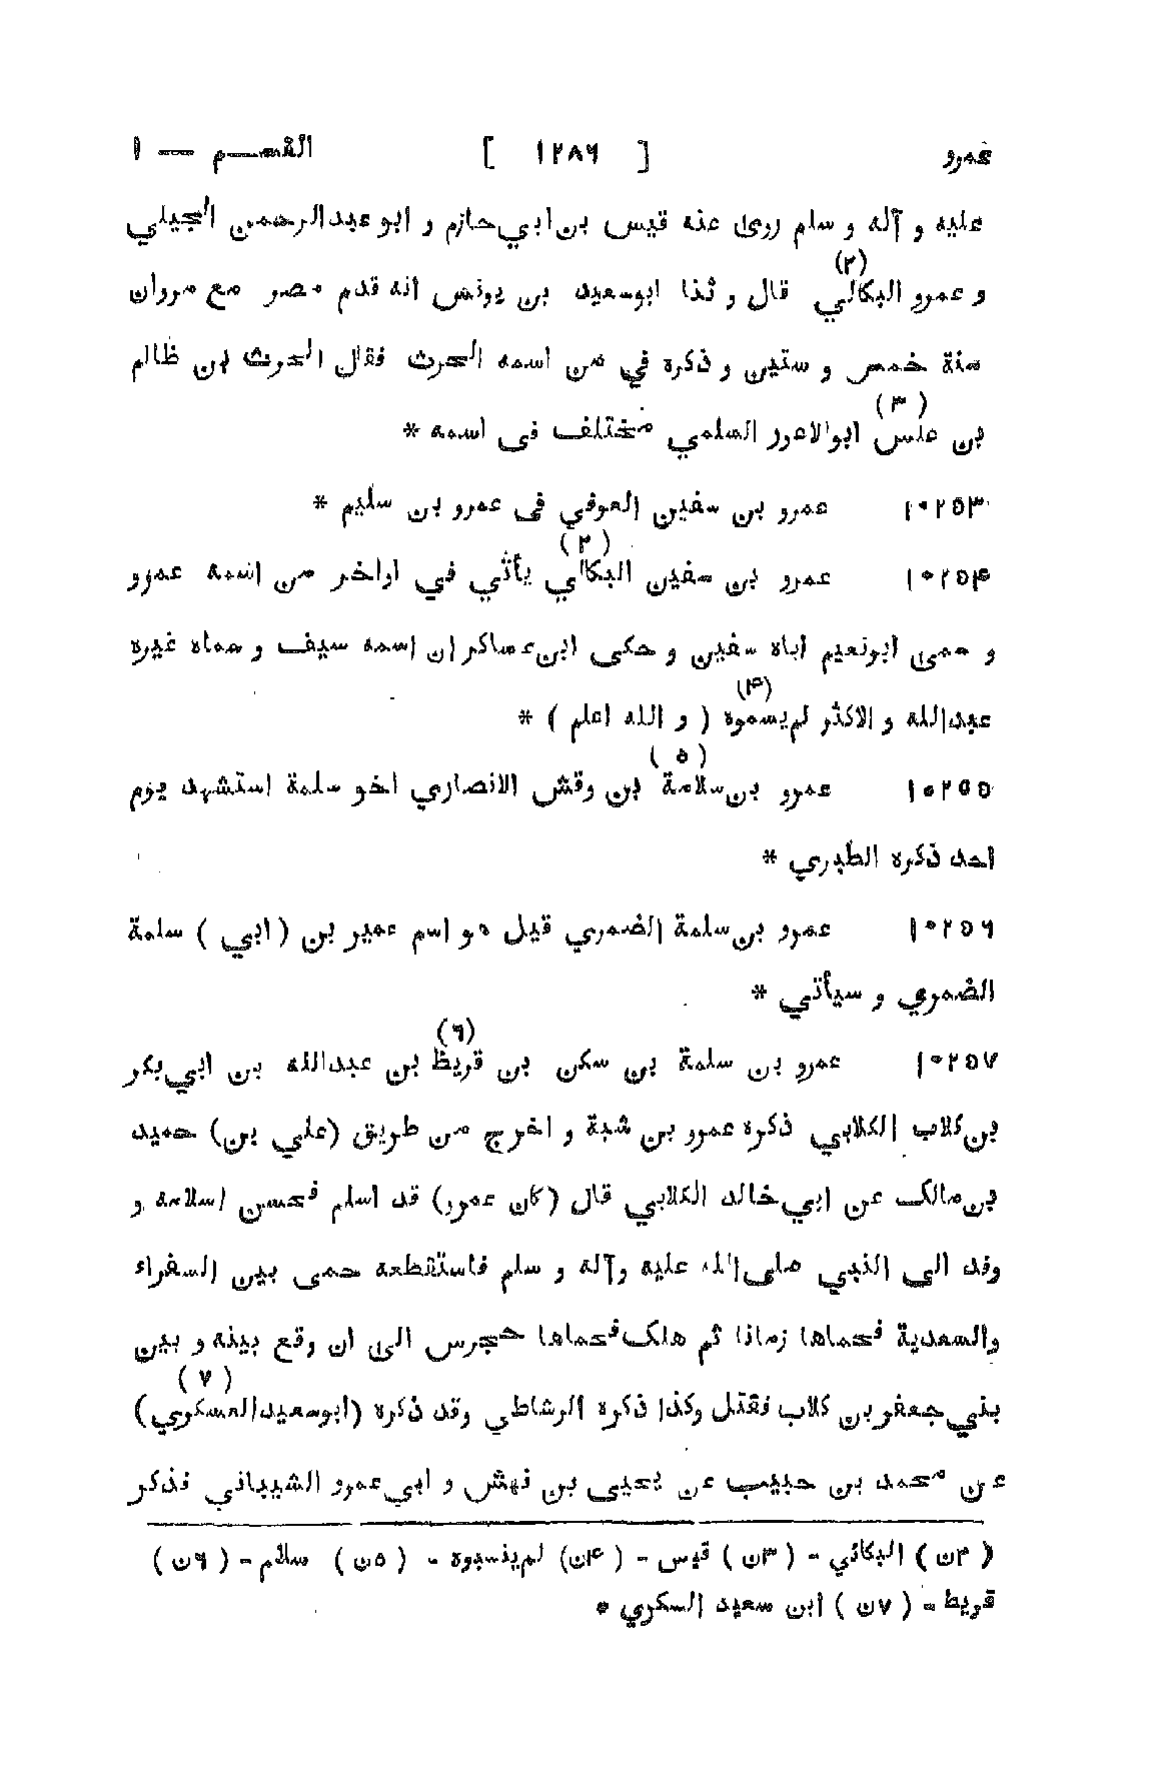 عمرو [ ١٢٨٦ ] القسم — ١
عليه و آله و سلم روى عنه قيس بن ابي حازم و ابو عبدالرحمن الجيلي
و عمرو البكالي (٢) قال و ثنا ابوسعيد بن يونس انه قدم مصر مع مروان
سنة خمس و ستين و ذكره في من اسمه الحرث فقال الحرث بن ظالم
بن علس (٣) ابوالاعور السلمي مختلف فى اسمه *
١٠٢٥٣ عمرو بن سفين العوفي فى عمرو بن سليم *
١٠٢٥۴ عمرو بن سفين البكالي (٢) يأتي في اواخر من اسمه عمرو
و سمى ابونعيم اباه سفين و حكى ابن عساكر ان اسمه سيف و سماه غيره
عبدالله و الاكثر لم يسموه (۴) ( و الله اعلم ) *
١٠٢٥٥ عمرو بن سلامة (٥) بن وقش الانصاري اخو سلمة استشهد يوم
احد ذكره الطبري *
١٠٢٥٦ عمرو بن سلمة الضمري قيل هو اسم عمير بن ( ابي ) سلمة
الضمري و سيأتي *
١٠٢٥٧ عمرو بن سلمة بن سكن بن قريظ (٦) بن عبدالله بن ابي بكر
بن كلاب الكلابي ذكره عمرو بن شبة و اخرج من طريق (علي بن) حميد
بن مالك عن ابي خالد الكلابي قال (كان عمرو) قد اسلم فحسن اسلامه و
وفد الى النبي صلى الله عليه وآله و سلم فاستقطعه حمى بين السفراء
والسعدية فحماها زمانا ثم هلك فحماها حجرس الى ان وقع بينه و بين
بني جعفر بن كلاب فقتل وكذا ذكره الرشاطي وقد ذكره (ابوسعيد العسكري) (٧)
عن محمد بن حبيب عن يحيى بن نهش و ابي عمرو الشيباني فذكر
( ٢ن ) البكائي - ( ٣ن ) قيس - ( ۴ن) لم ينسبوه - ( ٥ن ) سلام - ( ٦ن )
قريط - ( ٧ن ) ابن سعيد السكري *